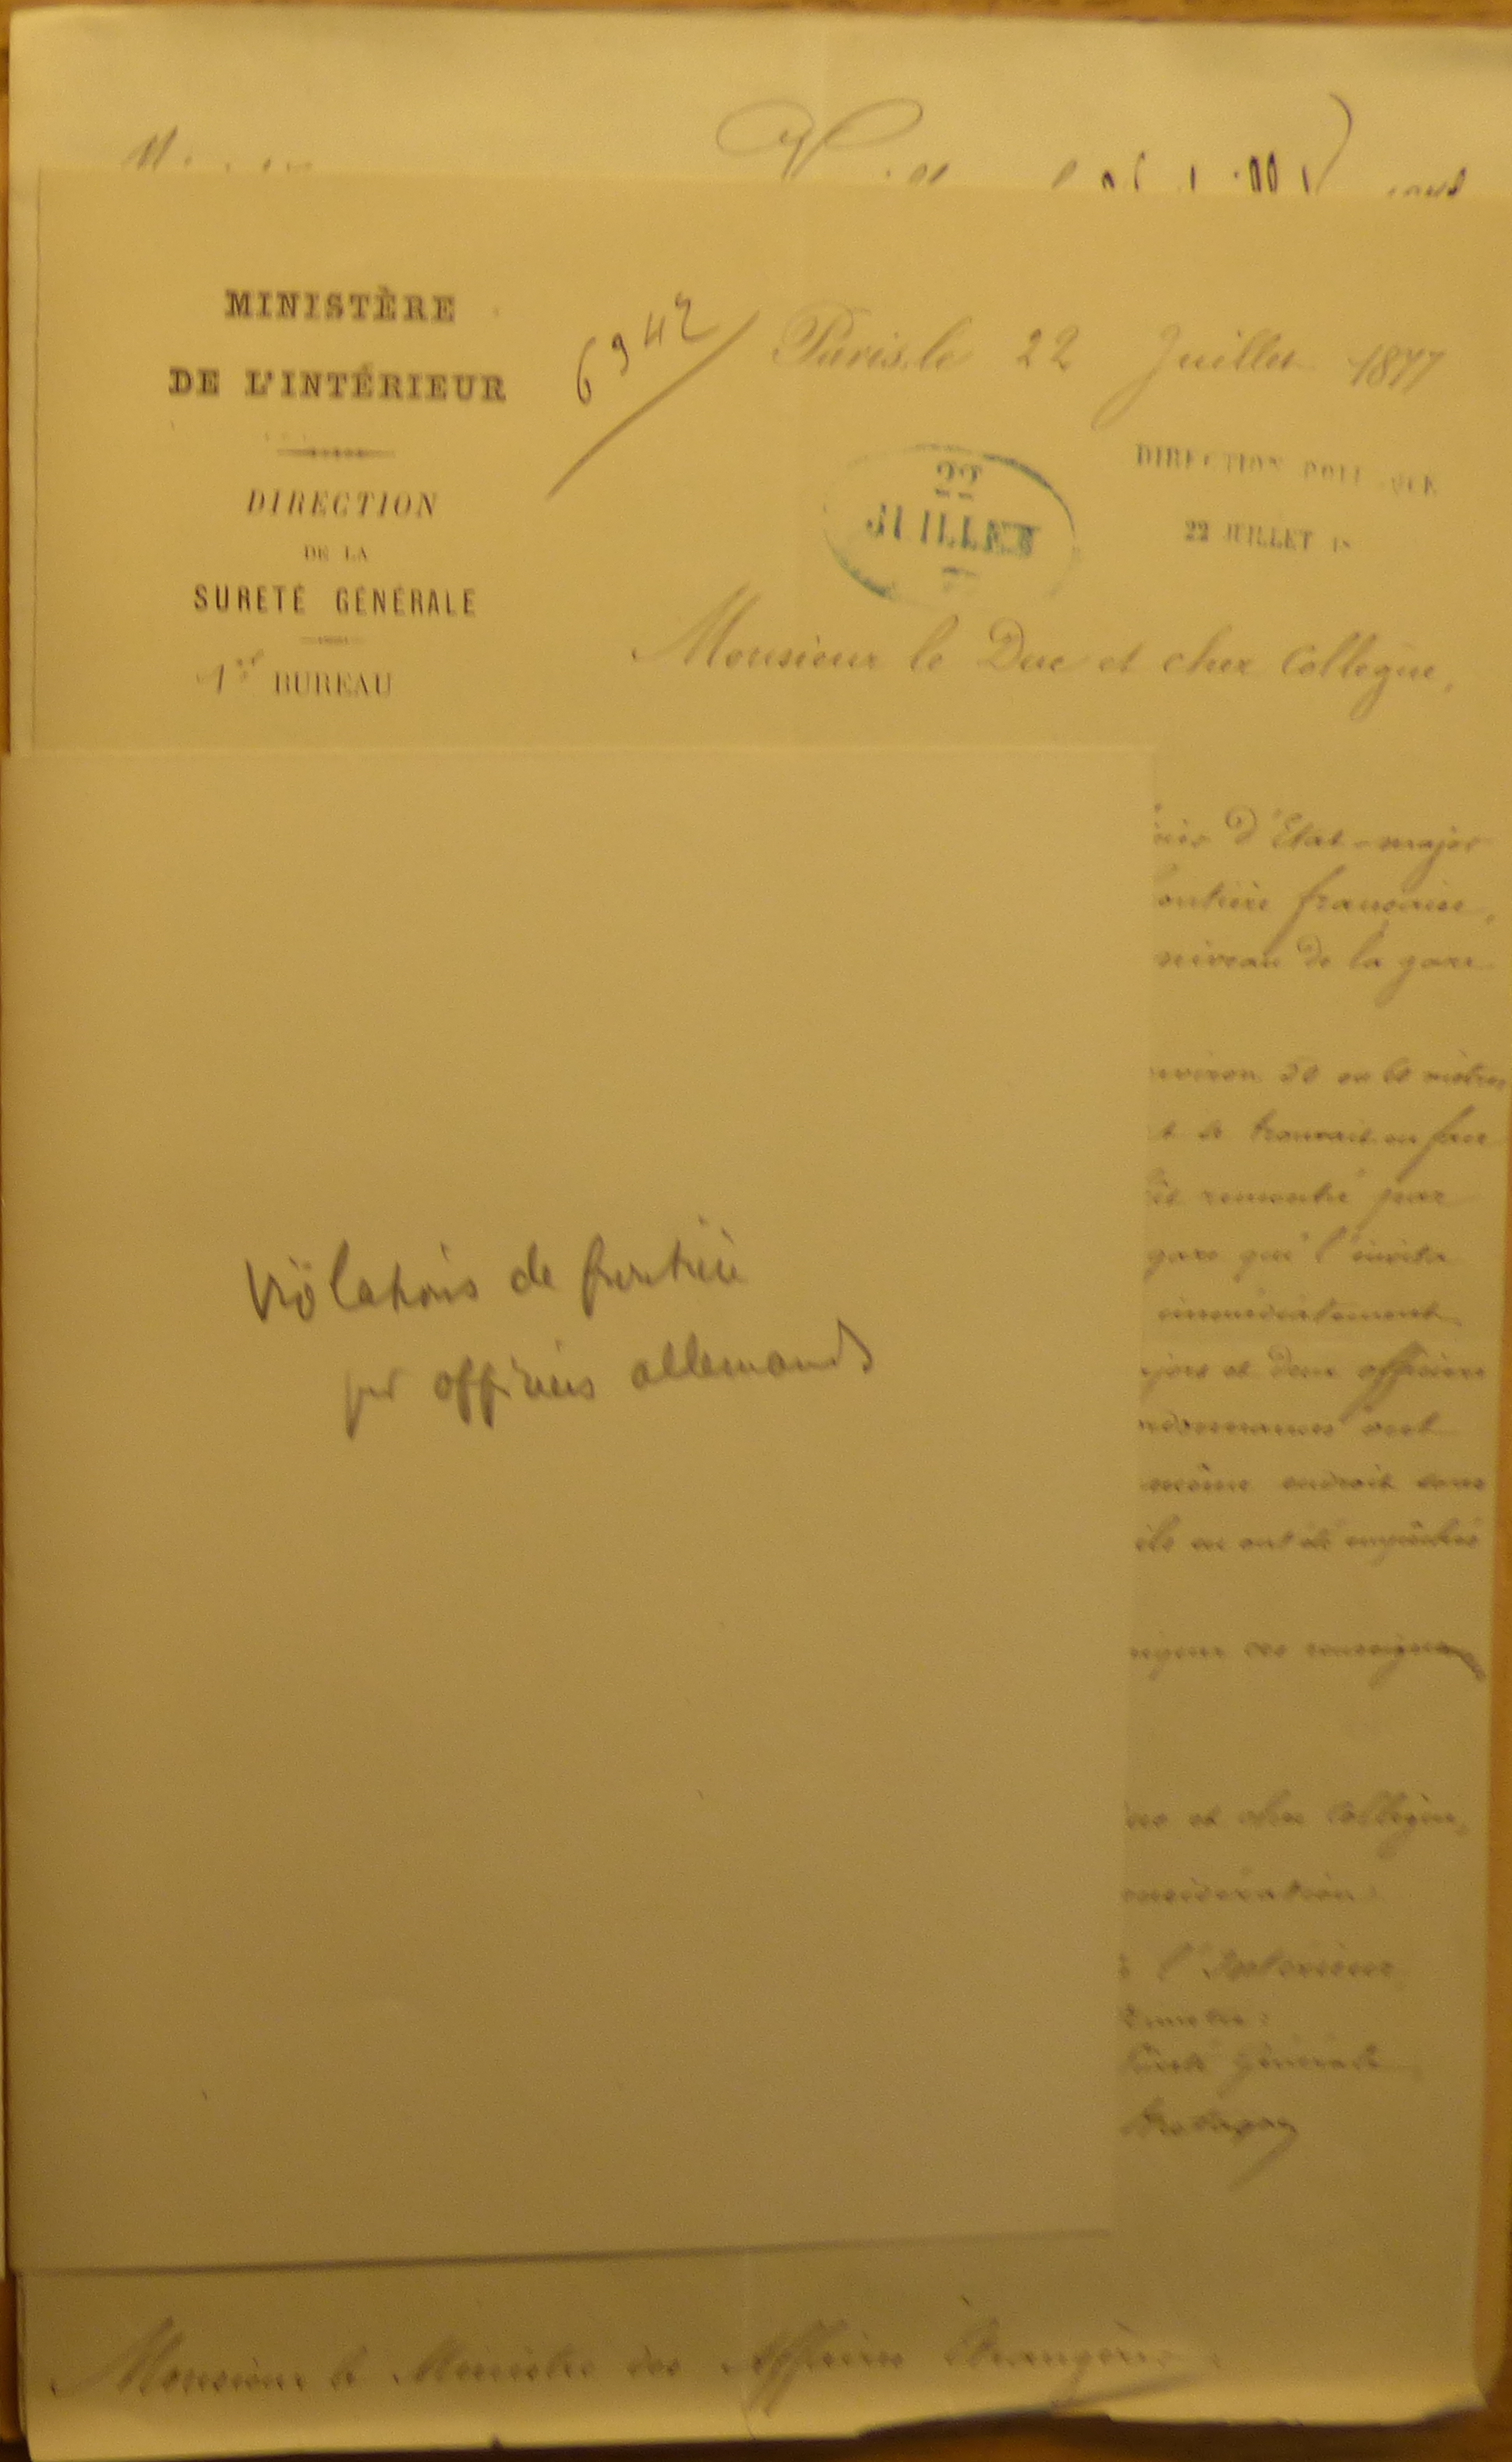 MINISTÈRE
DE L'INTÉRIEUR
DIRECTION
DE LA
SURETÉ GÉNÉRALE
1er BUREAU
6942
Paris, le 22 Juillet 1877
22
JUILLET
77
DIRECTION POLITIQUE
22 JUILLET 18
Monsieur le Duc et cher Collègue,
d'Etat-major
frontière française,
niveau de la gare
environ 50 ou 60 mètres
se trouvait en face
rencontré par
gare qui l'invita
immédiatement
et deux officiers
ordonnances ont
même endroit sans
ils en ont été empêchés
ces renseignements
et cher Collègue,
considération.
l'Intérieur
Sûreté Générale
Violations de frontière
par officiers allemands
Monsieur le Ministre des Affaires Etrangères.